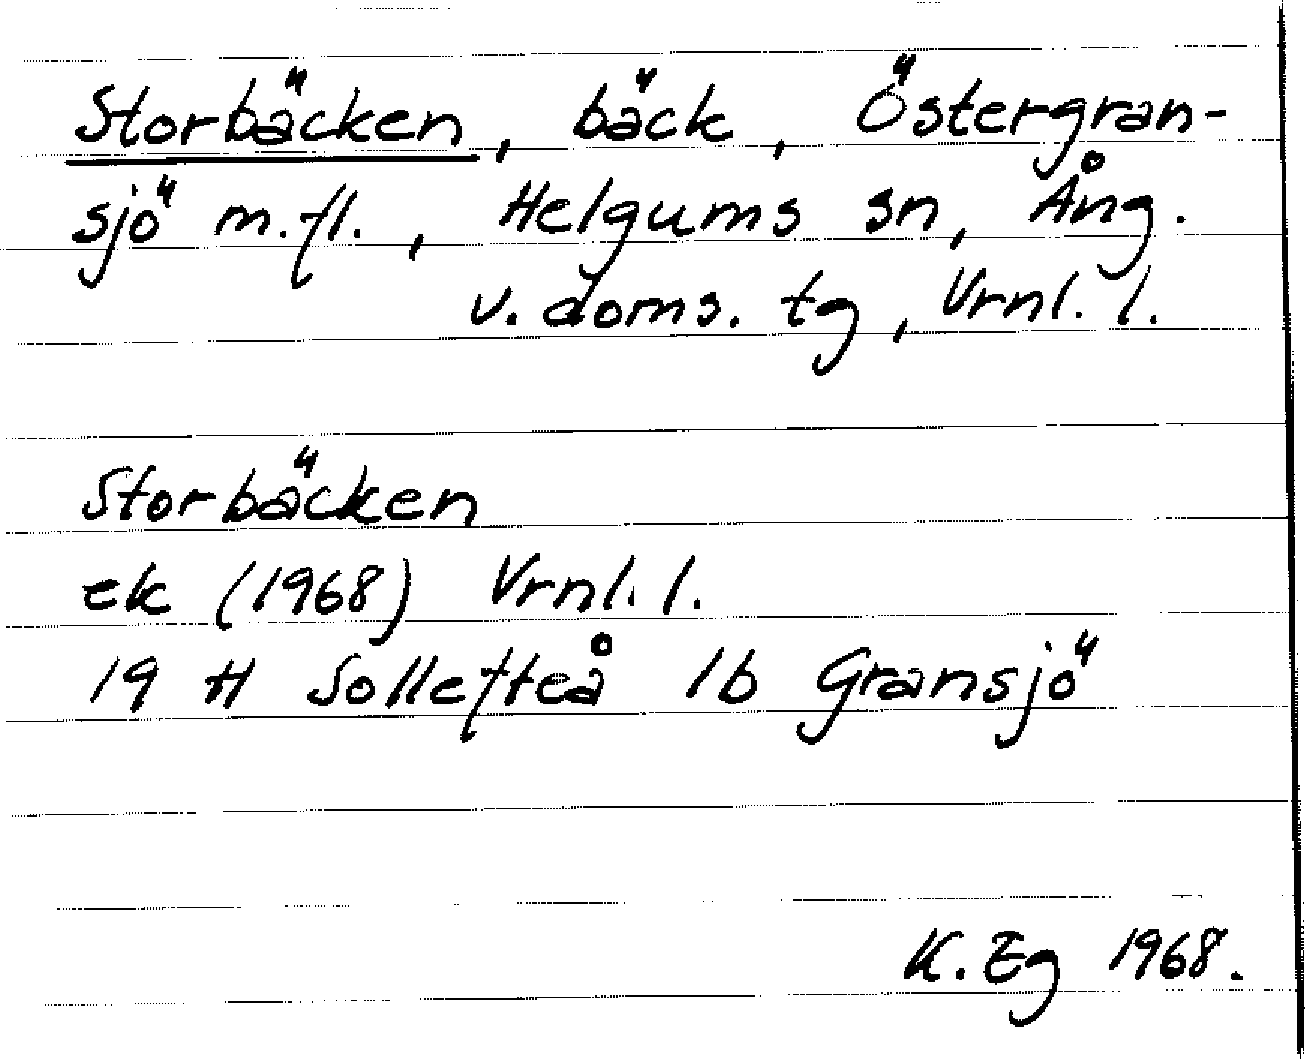 Storbäcken, bäck, Östergran-
sjö m.fl., Helgums sn, Ång.
v. doms. tg, Vrnl. l.
Storbäcken
ek (1968) Vrnl. l.
19 H Sollefteå 1b Gransjö
K. Eg 1968.